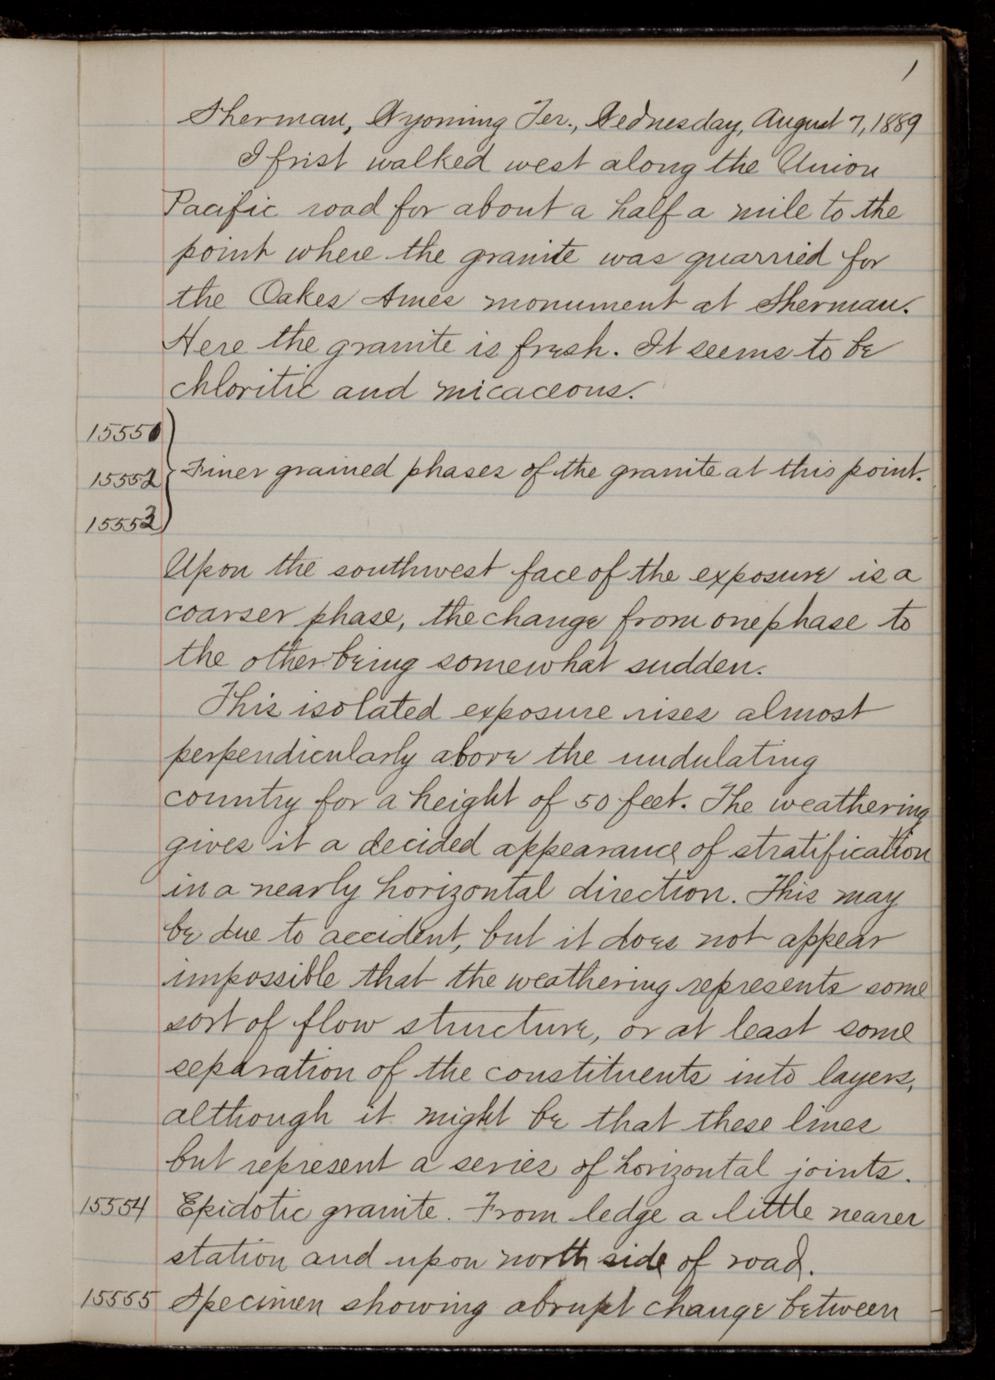 1
Sherman, Wyoming Ter., Wednesday, August 7, 1889
I frist walked west along the Union
Pacific road for about a half a mile to the
point where the granite was quarried for
the Oakes Ames monument at Sherman.
Here the granite is fresh. It seems to be
chloritic and micaceous.
15551
15552 Finer grained phases of the granite at this point.
15553
Upon the southwest face of the exposure is a
coarser phase, the change from one phase to
the other being somewhat sudden.
This isolated exposure rises almost
perpendicularly above the undulating
country for a height of 50 feet. The weathering
gives it a decided appearance of stratification
in a nearly horizontal direction. This may
be due to accident, but it does not appear
impossible that the weathering represents some
sort of flow structure, or at least some
separation of the constituents into layers,
although it might be that these lines
but represent a series of horizontal joints.
15554 Epidotic granite. From ledge a little nearer
station and upon north side of road.
15555 Specimen showing abrupt change between